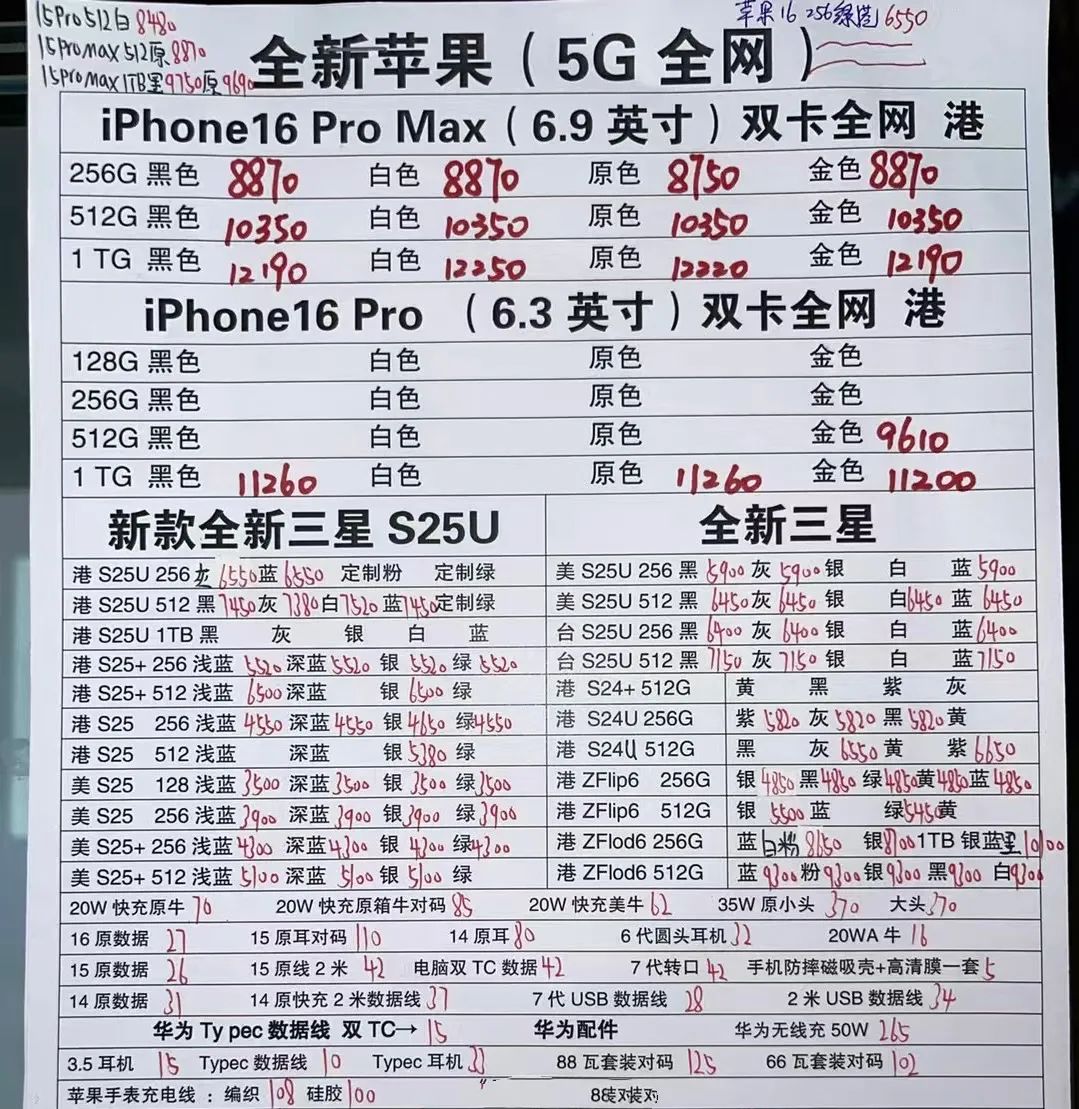 15Pro 512白 8480
苹果16 256绿蓝 6550
15Pro max 512原 8870
15Pro max 1TB黑9750原9690
全新苹果（5G 全网）
iPhone16 Pro Max（6.9 英寸）双卡全网 港
256G 黑色 8870 白色 8870 原色 8750 金色 8870
512G 黑色 10350 白色 10350 原色 10350 金色 10350
1 TG 黑色 12190 白色 12250 原色 12220 金色 12190
iPhone16 Pro （6.3 英寸）双卡全网 港
128G 黑色 白色 原色 金色
256G 黑色 白色 原色 金色
512G 黑色 白色 原色 金色 9610
1 TG 黑色 11260 白色 原色 11260 金色 11200
新款全新三星 S25U
港 S25U 256 灰 6550 蓝 6550 定制粉 定制绿
港 S25U 512 黑 7450 灰 7380 白 7520 蓝 7450 定制绿
港 S25U 1TB 黑 灰 银 白 蓝
港 S25+ 256 浅蓝 5520 深蓝 5520 银 5520 绿 5520
港 S25+ 512 浅蓝 6500 深蓝 银 6500 绿
港 S25 256 浅蓝 4550 深蓝 4550 银 4650 绿 4550
港 S25 512 浅蓝 深蓝 银 5380 绿
美 S25 128 浅蓝 3500 深蓝 3500 银 3500 绿 3500
美 S25 256 浅蓝 3900 深蓝 3900 银 3900 绿 3900
美 S25+ 256 浅蓝 4300 深蓝 4300 银 4300 绿 4300
美 S25+ 512 浅蓝 5100 深蓝 5100 银 5100 绿
全新三星
美 S25U 256 黑 5900 灰 5900 银 白 蓝 5900
美 S25U 512 黑 6450 灰 6450 银 白 6450 蓝 6450
台 S25U 256 黑 6400 灰 6400 银 白 蓝 6400
台 S25U 512 黑 7150 灰 7150 银 白 蓝 7150
港 S24+ 512G 黄 黑 紫 灰
港 S24U 256G 紫 5820 灰 5820 黑 5820 黄
港 S24U 512G 黑 灰 6550 黄 紫 6650
港 ZFlip6 256G 银 4850 黑 4850 绿 4850 黄 4850 蓝 4850
港 ZFlip6 512G 银 5500 蓝 绿 5450 黄
港 ZFlod6 256G 蓝 白粉 8650 银 8100 1TB 银蓝黑 10100
港 ZFlod6 512G 蓝 9300 粉 9300 银 9300 黑 9300 白 9300
20W 快充原牛 70 20W 快充原箱牛对码 85 20W 快充美牛 62 35W 原小头 370 大头 370
16 原数据 27 15 原耳对码 110 14 原耳 80 6 代圆头耳机 32 20WA 牛 16
15 原数据 26 15 原线 2 米 42 电脑双 TC 数据 42 7 代转口 42 手机防摔磁吸壳+高清膜一套 5
14 原数据 31 14 原快充 2 米数据线 37 7 代 USB 数据线 28 2 米 USB 数据线 34
华为 Ty pec 数据线 双 TC→ 15 华为配件 华为无线充 50W 265
3.5 耳机 15 Typec 数据线 10 Typec 耳机 33 88 瓦套装对码 125 66 瓦套装对码 102
苹果手表充电线：编织 108 硅胶 100